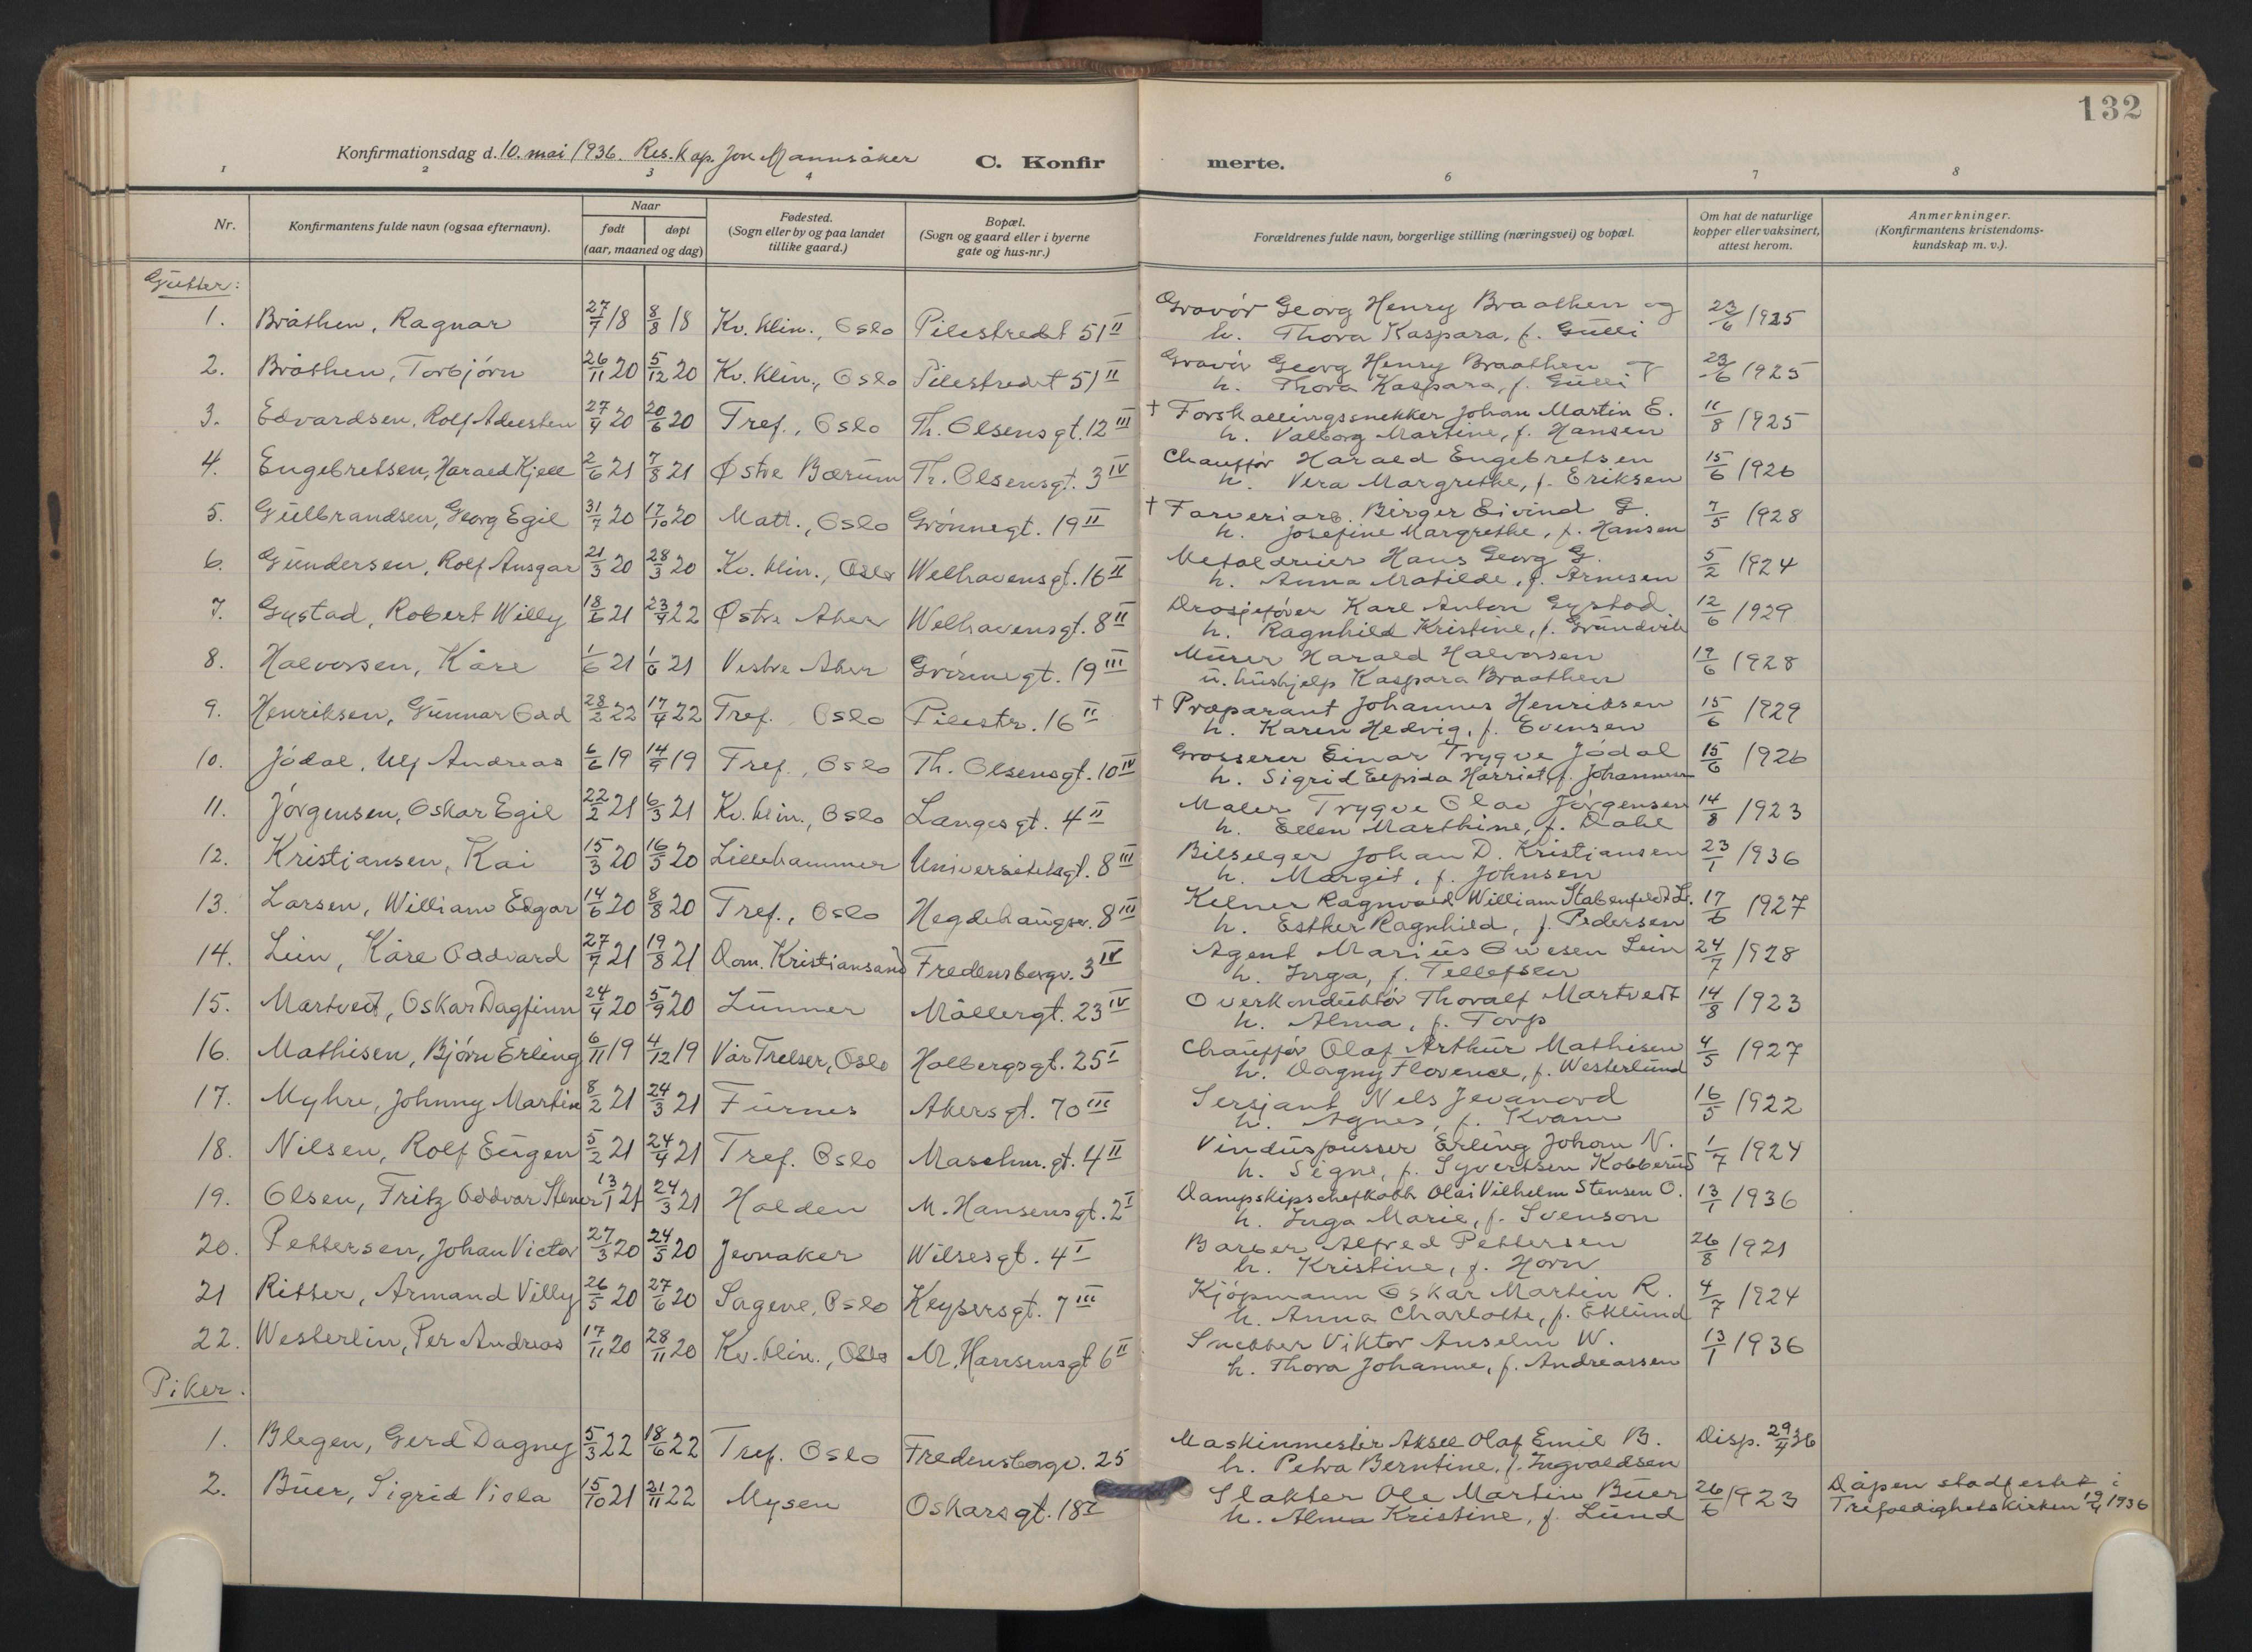 132
Konfirmationsdag d. 10. mai 1936. Res. kap. Jon Mannsåker C. Konfir merte.
1 2 3 4 6 7 8
Nr. Konfirmantens fulde navn (ogsaa efternavn). Naar født døpt (aar, maaned og dag) Fødested. (Sogn eller by og paa landet tillike gaard.) Bopæl. (Sogn og gaard eller i byerne gate og hus-nr.) Forældrenes fulde navn, borgerlige stilling (næringsvei) og bopæl. Om hat de naturlige kopper eller vaksinert, attest herom. Anmerkninger. (Konfirmantens kristendoms-kundskap m. v.).
Gutter:
1. Bråthen, Ragnar 27/7 18 8/8 18 Kv. klin., Oslo Pilestredet 51 II Gravør Georg Henry Braathen og 23/6 1925
h. Thora Kaspara, f. Gulli
2. Bråthen, Torbjørn 26/11 20 5/12 20 Kv. klin., Oslo Pilestredet 51 II Gravør Georg Henry Braathen 23/6 1925
h. Thora Kaspara, f. Gulli
3. Edvardsen, Rolf 27/4 20 20/6 20 Tref., Oslo Th. Olsens gt. 12 III † Forskallingssnekker Johan Martin E. 11/8 1925
h. Valborg Martine, f. Hansen
4. Engebretsen, Harald Kjell 2/6 21 7/8 21 Østre Bærum Th. Olsensgt. 3 IV Chauffør Harald Engebretsen 15/6 1926
h. Vera Margrethe, f. Eriksen
5. Gulbrandsen, Georg Egil 31/7 20 17/10 20 Matt., Oslo Grønnegt. 19 II † Farveriarb. Birger Eivind G. 7/5 1928
h. Josefine Margrethe, f. Hansen
6. Gundersen, Rolf Ansgar 21/3 20 28/3 20 Kv. klin., Oslo Welhavensgt. 16 II Metaldreier Hans Georg G. 5/2 1924
h. Anna Matilde, f. Arnesen
7. Gystad, Robert Willy 18/6 21 23/4 22 Østre Aker Welhavensgt. 8 II Drosjefører Karl Anton Gystad 12/6 1929
h. Ragnhild Kristine, f. Grundvik
8. Halvorsen, Kåre 1/6 21 1/6 21 Vestre Aker Grønnegt. 19 III Murer Harald Halvorsen 19/6 1928
u. hushjelp Kaspara Braathen
9. Henriksen, Gunnar Odd 28/2 22 17/4 22 Tref., Oslo Pilestr. 16 II † Præparant Johannes Henriksen 15/6 1929
h. Karen Hedvig, f. Evensen
10. Jødal, Ulf Andreas 6/6 19 14/9 19 Tref., Oslo Th. Olsensgt. 10 IV Grosserer Einar Trygve Jødal 15/6 1926
h. Sigrid Elfrida Harriet, f. Johannesen
11. Jørgensen, Oskar Egil 22/2 21 6/3 21 Kv. klin., Oslo Langes gt. 4 II Maler Trygve Olav Jørgensen 14/8 1923
h. Ellen Marthine, f. Dahl
12. Kristiansen, Kai 15/3 20 16/5 20 Lillehammer Universitetsgt. 8 III Bilselger Johan D. Kristiansen 23/1 1936
h. Margit, f. Johnsen
13. Larsen, William Edgar 14/6 20 8/8 20 Tref., Oslo Hegdehaugsv. 8 III Kelner Ragnvald William Stabenfeldt L. 17/6 1927
h. Esther Ragnhild, f. Pedersen
14. Lein, Kåre Oddvard 27/7 21 19/8 21 Dom. Kristiansand Fredensborgv. 3 IV Agent Marius Ovesen Lein 24/7 1928
h. Inga, f. Tellefsen
15. Martvedt, Oskar Dagfinn 24/4 20 5/9 20 Lunner Møllergt. 23 IV Overkonduktør Thoralf Martvedt 14/8 1923
h. Alma, f. Torp
16. Mathisen, Bjørn Erling 6/11 19 4/12 19 Vår Frelser, Oslo Holbergsgt. 25 I Chauffør Olaf Arthur Mathisen 4/5 1927
h. Dagny Florence, f. Westerlund
17. Myhre, Johnny Martin 8/2 21 24/3 21 Furnes Akersgt. 70 III Sersjant Nels Jevanord 16/5 1922
h. Agnes, f. Kvam
18. Nilsen, Rolf Eugen 5/2 21 24/4 21 Tref. Oslo Maschm. gt. 4 II Vinduspusser Erling Johan N. 1/7 1924
h. Signe, f. Syvertsen Kobberud
19. Olsen, Fritz Oddvar Stener 13/1 21 24/3 21 Halden M. Hansensgt. 2 I Dampskipschefkokk Olai Vilhelm Stensen O. 13/1 1936
h. Inga Marie, f. Svenson
20. Pettersen, Johan Victor 27/3 20 24/5 20 Jevnaker Wilsesgt. 4 I Barber Alfred Pettersen 26/8 1921
h. Kristine, f. Horn
21 Ritter, Armand Villy 26/5 20 27/6 20 Sagene, Oslo Keysersgt. 7 III Kjøpmann Oskar Martin R. 4/7 1924
h. Anna Charlotte, f. Eklund
22. Westerlin, Per Andreas 17/11 20 28/11 20 Kv. klin., Oslo M. Hansensgt 6 II Snekker Viktor Anselm W. 13/1 1936
h. Thora Johanne, f. Andreassen
Piker.
1. Blegen, Gerd Dagny 5/3 22 18/6 22 Tref. Oslo Fredensborgv. 25 Maskinmester Aksel Olaf Emil B. Disp. 29/4 36
h. Petra Berntine, f. Ingvaldsen
2. Buer, Sigrid Viola 15/10 21 21/11 22 Mysen Oskarsgt. 18 I Slakter Ole Martin Buer 26/6 1923 Dåpen stadfestet i
h. Alma Kristine, f. Lund Trefoldighetskirken 19/4 1936